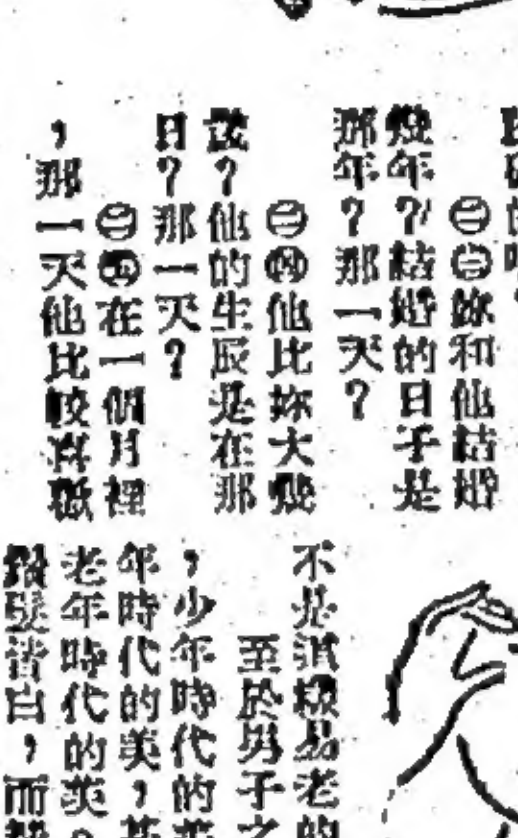 ㊂㊂妳和他結婚
幾年？結婚的日子是
那年？那一天？
㊂㊃他比妳大幾
歲？他的生辰是在那
日？那一天？
㊂㊄在一個月裡
，那一天他比較喜歡
不是這樣易老的
至於男子之
，少年時代的美
年時代的美，
老年時代的美。
鬚髮皆白，而